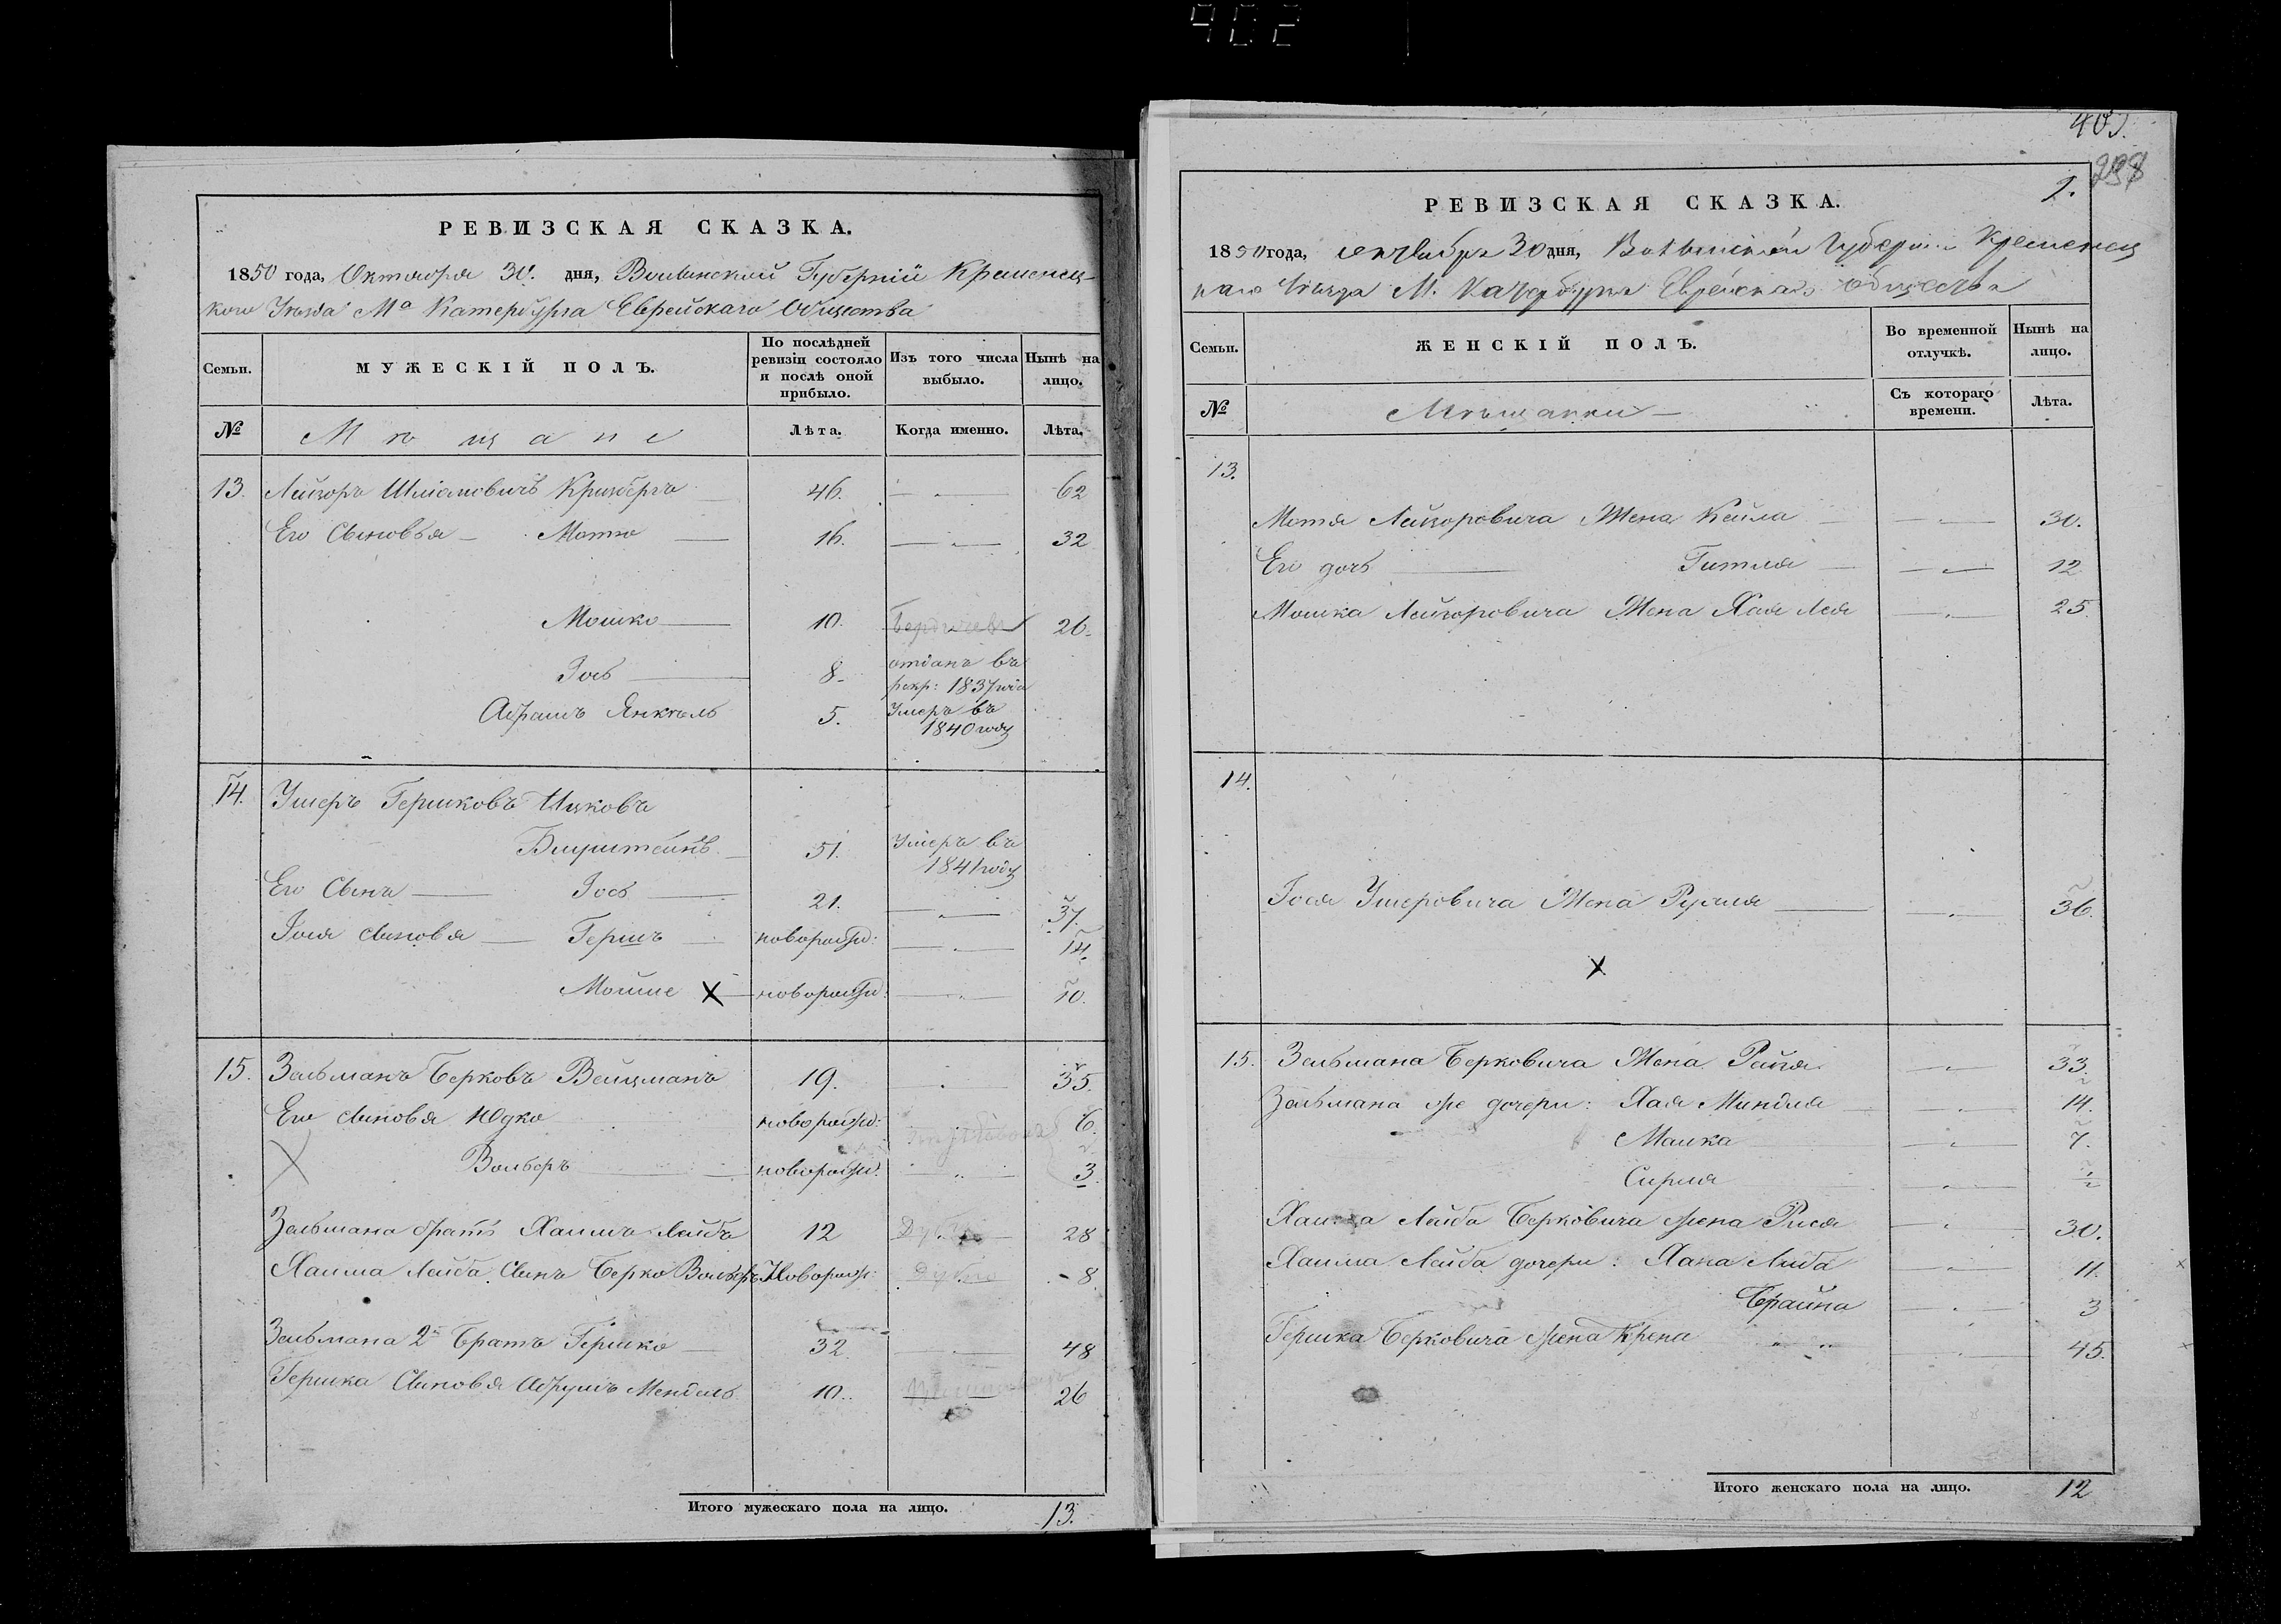 402
РЕВИЗСКАЯ СКАЗКА.
1850 года, Октября 30. дня, Волынской Губернiи Кременец-
кого Уѣзда Мᵃ Катербурга Еврейскаго Общества
Семьи.
МУЖЕСКIЙ ПОЛЪ.
По послѣдней ревизiи состояло и послѣ оной прибыло.
Изъ того числа выбыло.
Нынѣ на лицо.
№
Мѣщане
Лѣта.
Когда именно.
Лѣта.
13. Лейзоръ Шлiомовичъ 46. 62
Его Сыновья Мотю 16. 32
Мошко 10. Бердичевъ 26.
Iось 8 отданъ въ рекр: 1837 года
Абрамъ Янкель 5. Умеръ въ 1840 году
14. Ушеръ Гершковъ Ицковъ
51. Умеръ въ 1841 году
Его Сынъ Iось 21. 37.
Iося сыновья Гершъ новорожд: 14.
Мойше X новорожд: 10.
15. Зельманъ Берковъ Вейцманъ 19. 35.
Его сыновья Юдко новорожд: 6.
Вольферъ новорожд: 3.
Зельмана братъ Хаимъ Лейба 12 Дубно 28
Хаима Лейба Сынъ Берко Вольферъ Новорожд: Дубно 8.
Зельмана 2й Братъ Гершко 32 48
Гершка Сыновья Абрумъ Мендель 10. 26
Итого мужескаго пола на лицо. 13.
403.
298
РЕВИЗСКАЯ СКАЗКА.
1850 года, октября 30 дня, Волынской Губернiи Кременец
каго Уѣзда М. Катербурга Еврейскаго общества
Семьи.
ЖЕНСКIЙ ПОЛЪ.
Во временной отлучкѣ.
Нынѣ на лицо.
№
Мѣщанки
Съ котораго времени.
Лѣта.
13.
Мотя Лейзоровича Жена Кейла 30.
Его дочь Гитля 12
Мошка Лейзоровича Жена Хая Лея 25
14.
Iося Ушеровича Жена Рухля 36.
X
15. Зельмана Берковича Жена Рейзя 33.
Зельмана же дочери: Хая Миндля 14.
Малка 7.
Сирля ½
Хаима Лейба Берковича жена Рися 30.
Хаима Лейба дочери: Хана Либа 11.
Брайна 3
Гершка Берковича жена Крена 45.
Итого женскаго пола на лицо. 12